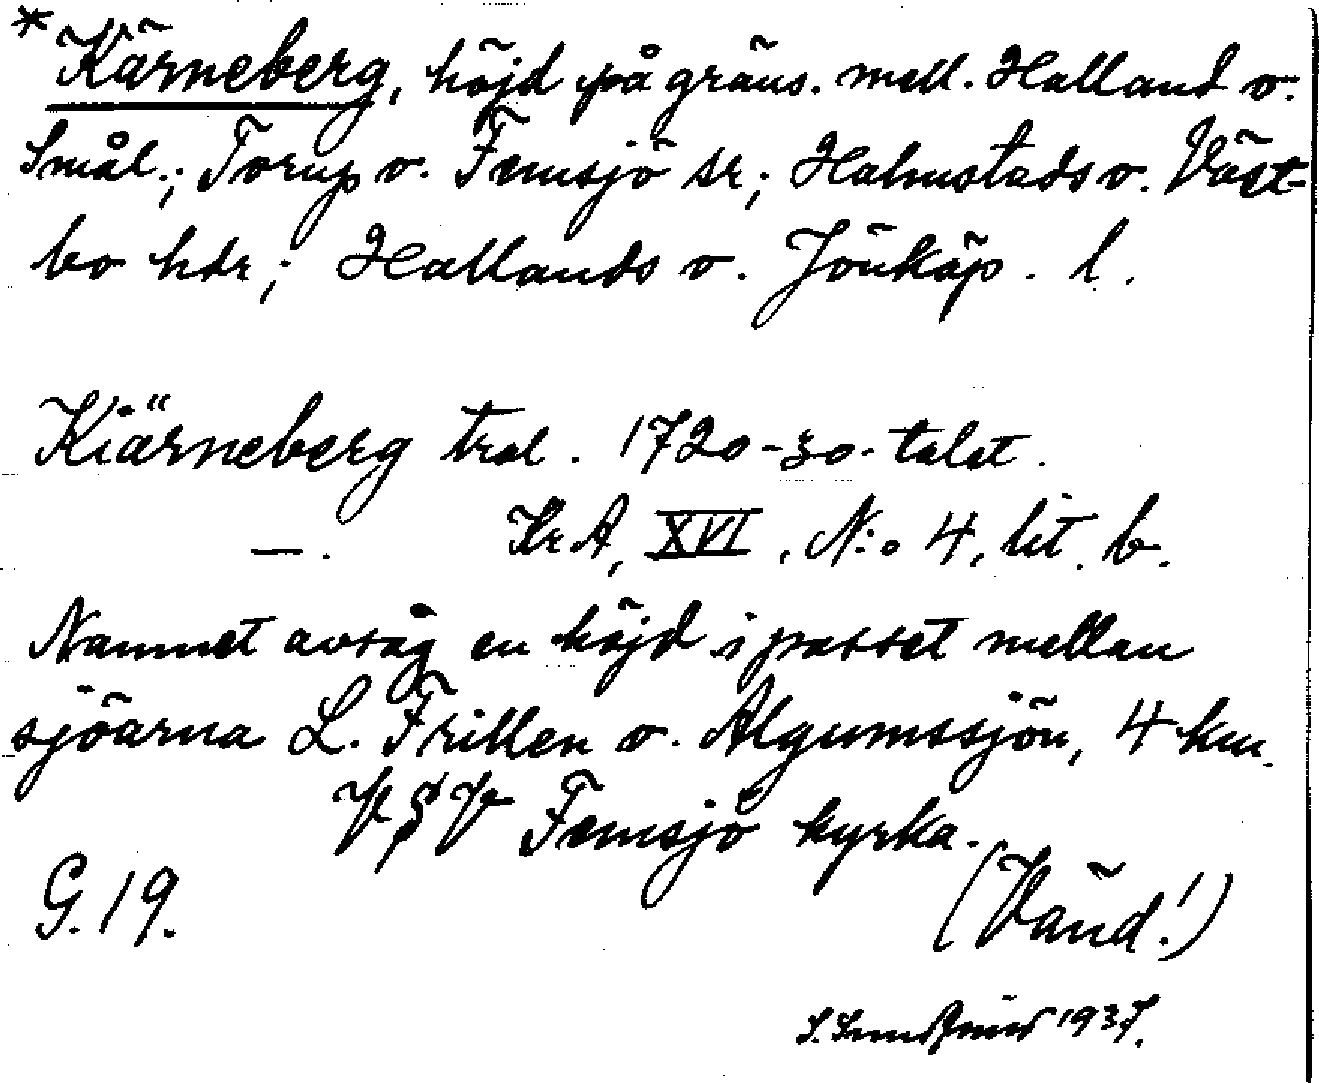 *Kärneberg, höjd på gräns. mell. Halland o.
Smål.; Torup o. Femsjö sn; Halmstads o. Väst-
bo hdr; Hallands o. Jönköp. l.
Kiärneberg trol. 1720-30-talet.
—. KrA, XVI, N:o 4, lit. b.
Namnet avsåg en höjd i passet mellan
sjöarna L. Frillen o. Algumssjön, 4 km.
V§V Femsjö kyrka.
G. 19. (Vänd!)
1937.